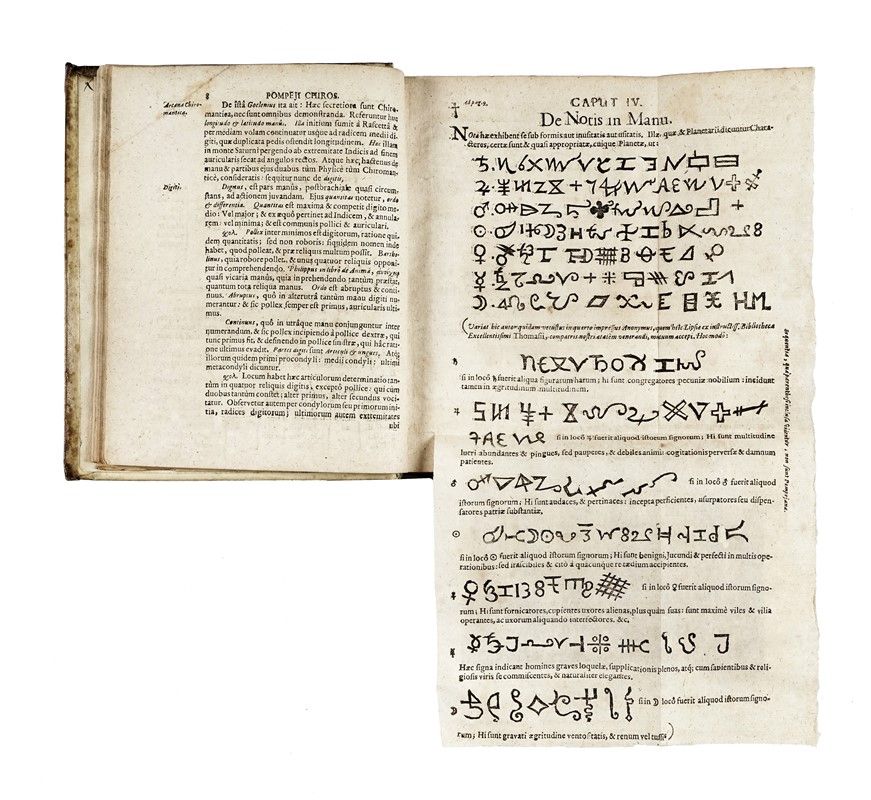 8 POMPEJI CHIROS.
Arcana Chiro-
mantica.
De istâ Goclenius ita ait : Hæc secretiora sunt Chiro-
mantiæ, nec sunt omnibus demonstranda. Referuntur huc
longitudo & latitudo manûs. Illa initium sumit â Rascettâ &
per mediam volam continuatur usque ad radicem medii di-
giti, quæ duplicata pedis ostendit longitudinem. Hæc illam
in monte Saturni pergendo ab extremitate Indicis ad finem
auricularis secat ad angulos rectos. Atque hæc, hactenus de
manu & partibus ejus duabus tùm Physicè tùm Chiroman-
ticè, consideratis : sequitur nunc de digitis,
Digiti.
Digitus, est pars manûs, postbrachiale quasi circum-
stans, ad actionem juvandam. Ejus quantitas notetur, ordo
& differentia. Quantitas est maxima & competit digito me-
dio : Vel major; & ex æquò pertinet ad Indicem, & annula-
rem : vel minima; & est communis pollici & auriculari.
Pollex inter minimos est digitorum, ratione qui-
dem quantitatis; sed non roboris: siquidem nomen inde
habet, quod polleat, & præ reliquis multum possit. Bartho-
linus, quia robore pollet, & unus quatuor reliquis opponi-
tur in comprehendendo. Philippus in libro de Animâ,
quasi vicaria manus, quia in prehendendo tantùm præstat,
quantum tota reliqua manus. Ordo est abruptus & conti-
nuus. Abruptus, quô in alterutrâ tantùm manu digiti nu-
merantur : & sic pollex semper est primus, auricularis ulti-
mus.
Continuus, quô in utrâque manu conjunguntur inter
numerandum, & sic pollex incipiendo â pollice dextræ, qui
tunc primus fit, & definendo in pollice sinistræ, qui hâc rati-
one ultimus evadit. Partes digiti sunt Articuli & ungues, Atq;
illorum quidem primi procondyli : medii condyli : ultimi
metacondyli dicuntur.
Locum habet hæc articulorum determinatio tan-
tùm in quatuor reliquis digitis, exceptô pollice : qui cùm
duobus tantùm constet; alter primus, alter secundus voci-
tatur. Observetur autem per condylorum seu primorum ini-
tia, radices digitorum; ultimorum autem extremitates
ubi
† ad pag. 9.
CAPUT IV.
De Notis in Manu.
Notæ hæ exhibent se sub formis aut inusitatis aut usitatis, Illæ, quæ & Planetarii dicuntur Chara-
cteres, certæ sunt & quasi appropriatæ, cuique Planetæ, ut :
♄.
♃.
♂.
☉.
♀.
☿.
☽.
(Varias hic autor quidam vetustus in quarto impressus Anonymus, quem hîc Lipsiæ ex instructiss. Bibliotheca
Excellentissimi Thomasii, compatris nostri ætatem venerandi, mutuum accepi. Hoc modo :
♄
si in locô ♄ fuerit aliqua figurarum harum; hi sunt congregatores pecuniæ nobilium : incidunt
tamen in ægritudinum multitudinem.
♃
si in locô ♃ fuerit aliquod istorum signorum; Hi sunt multitudine
lucri abundantes & pingues, sed pauperes, & debiles animi: cogitationis perversæ & damnum
patientes.
♂
si in locô ♂ fuerit aliquod
istorum signorum; Hi sunt audaces, & pertinaces : incepta perficientes, usurpatores seu dispen-
satores patriæ substantiæ.
☉
si in locô ☉ fuerit aliquod istorum signorum; Hi sunt benigni, Jucundi & perfecti in multis ope-
rationibus: sed irascibiles & citô â quâcunque re tædium accipientes.
♀
si in locô ♀ fuerit aliquod istorum signo-
rum; Hi sunt fornicatores, cupientes uxores alienas, plus quàm suas: sunt maximè viles & vilia
operantes, ac uxorum aliquando interfectores. &c,
☿
Hæc signa indicant homines graves loquelæ, supplicationis plenos, atq; cum sapientibus & reli-
giosis viris se commiscentes, & naturaliter elegantes.
☽
si in ☽ locô fuerit aliquod istorum signo-
rum; Hi sunt gravati ægritudine ventositatis, & renum vel tussis)